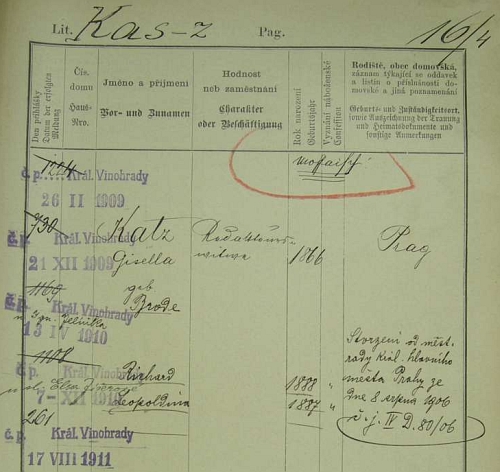 Lit. Kas-z Pag. 16/4
Den přihlášky
Datum der erfolgten Meldung
Čís. domu
Haus-Nro.
Jméno a příjmení
Vor- und Zunamen
Hodnost
neb zaměstnání
Charakter
oder Beschäftigung
Rok narození
Geburtsjahr
Vyznání náboženské
Confession
Rodiště, obec domovská,
záznam týkající se oddavek
a listin o příslušnosti do-
movské a jiná poznamenání
Geburts- und Zuständigkeitsort,
sowie Aufzeichnung der Trauung
und Heimatsdokumente und
sonstige Anmerkungen
1224
č. p. Král. Vinohrady
mosaisch
26 II 1909
730
č. p. Král. Vinohrady
Katz
Prag
21 XII 1909
Gisella
witwe
1866
1169
geb.
č. p. Král. Vinohrady
Brode
13 IV 1910
1108
č. p. Král. Vinohrady
Richard
1888 "
7- XII 1910
Leopoldina
1887 "
Stvrzení od měst.
rady král. hlavního
města Prahy ze
dne 8 srpna 1906
č. j. IV D. 80/06
261
č. p. Král. Vinohrady
17 VIII 1911